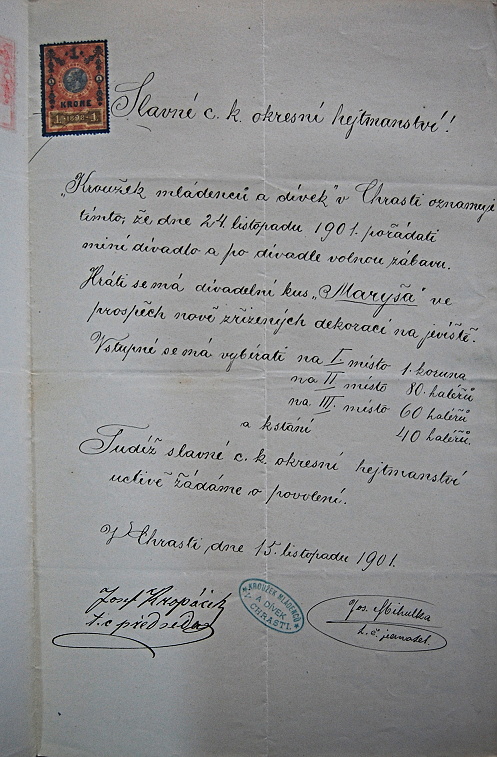 1
KRONE
1 1898 1
Slavné c. k. okresní hejtmanství!
„Kroužek mládenců a dívek“ v Chrasti oznamuje
tímto, že dne 24. listopadu 1901 pořádati
míní divadlo a po divadle volnou zábavu.
Hráti se má divadelní kus „Maryša“ ve
prospěch nově zřízených dekorací na jeviště.
Vstupné se má vybírati na I. místo 1. koruna
na II místo 80. haléřů
na III. místo 60 haléřů
a k stání 40 haléřů.
Tudíž slavné c. k okresní hejtmanství
uctivě žádáme o povolení.
V Chrasti dne 15. listopadu 1901.
Josef Kropáček
t. č předseda
KROUŽEK MLÁDENCŮ
A DÍVEK
CHRASTI.
Jos. Mihulka
t. č. jednatel.